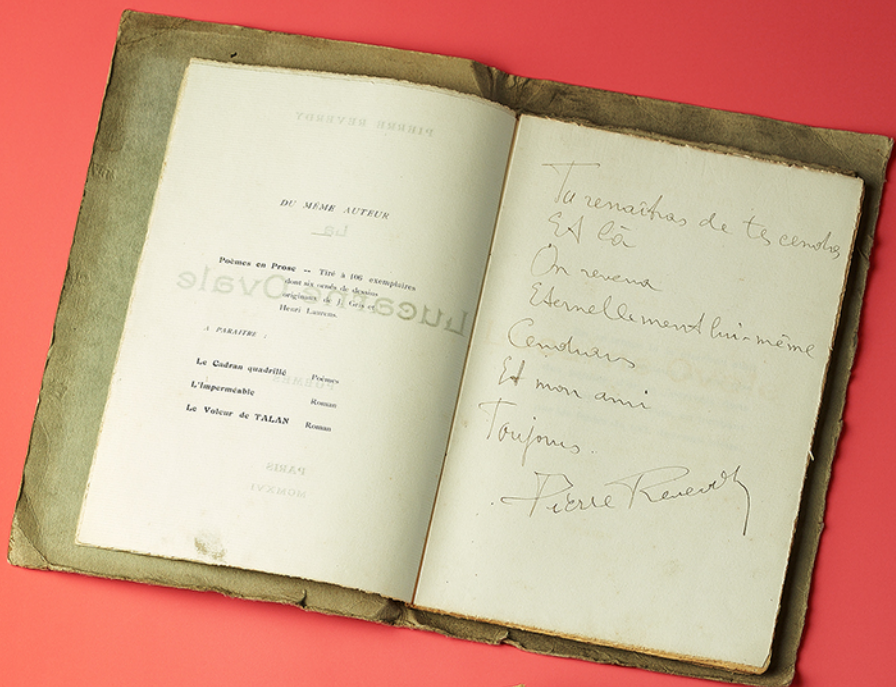 PIERRE REVERDY
DU MÊME AUTEUR
La
Poèmes en Prose -- Tiré à 106 exemplaires
dont six ornés de dessins
originaux de J. Gris et
Henri Laurens.
Lucarne Ovale
A PARAITRE :
Le Cadran quadrillé Poèmes
POÈMES
L'Imperméable Roman
Le Voleur de TALAN Roman
PARIS
MCMXVI
Tu renaîtras de tes cendres
Et là
On reverra
Eternellement lui-même
Cendrars
Et mon ami
Toujours.
Pierre Reverdy